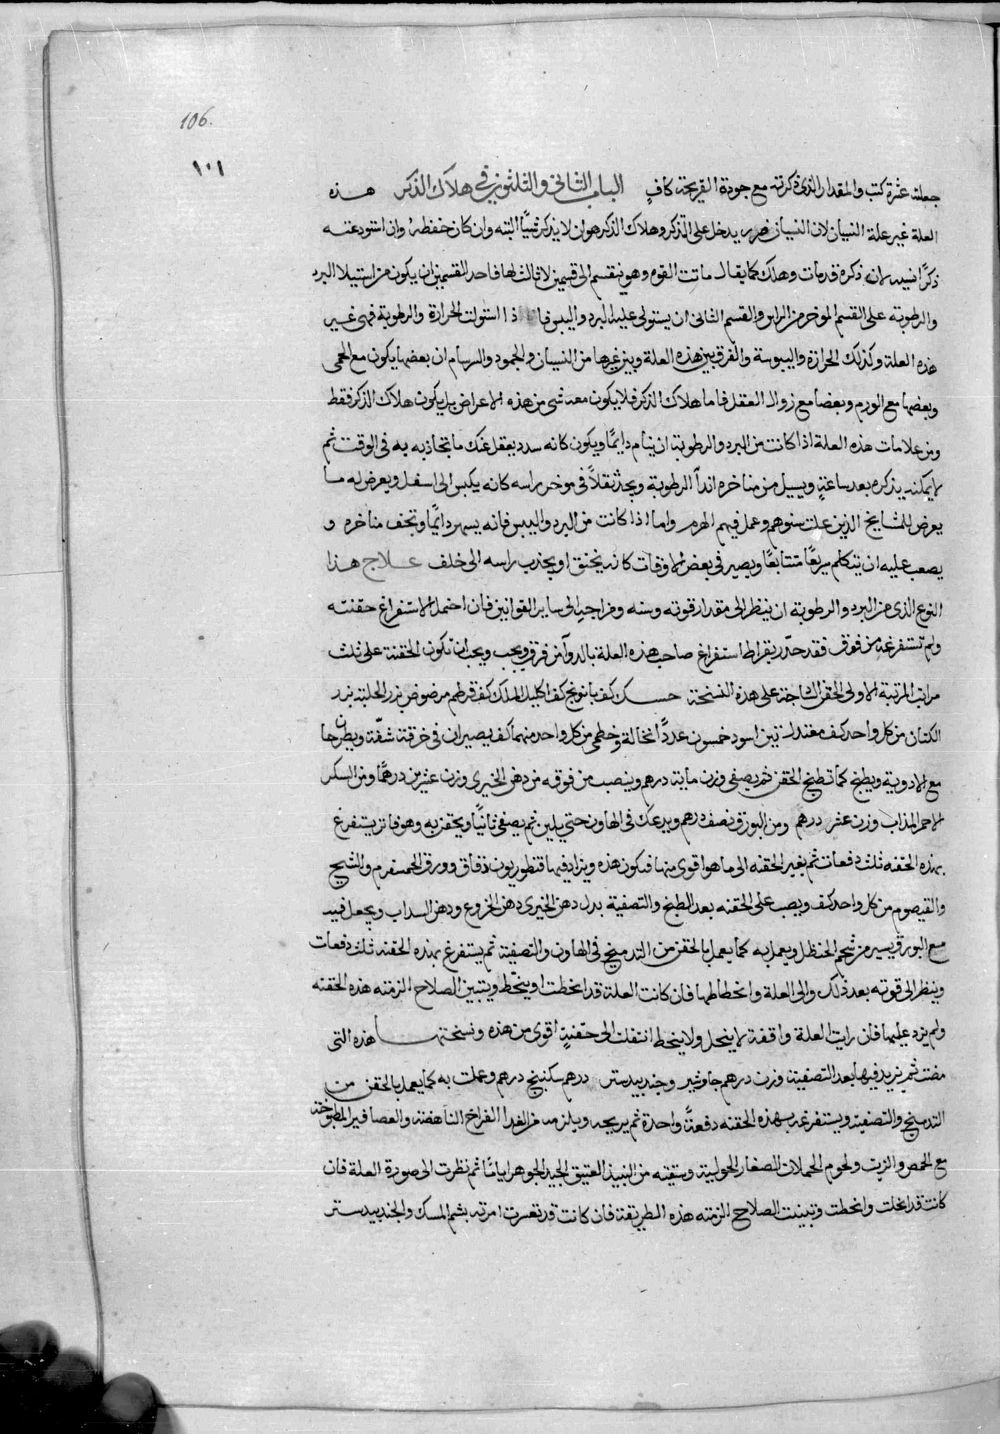 106.
١٠١
جعلته عشرة كتب والمقدار الذى ذكرته مع جودة القريحة كافٍ الباب الثانى والثلثون فى هلاك الذكر هذه
العلة غير علة النسيان لان النسيان ضرر يدخل على الذكر وهلاك الذكر هو ان لا يذكر شيئًا البته وان كان حفظه وان استودعته
ذكرًا نسيه لان ذكره قد مات وهلك كما يقال ماتت القوه وهو ينقسم الى قسمين لا ثالث لها فاحد القسمين ان يكون من استيلا البرد
والرطوبة على القسم الموخر من الراس والقسم الثانى ان يستولى عليه البرد واليبس فا ذا استولت الحرارة والرطوبة فهى غير
هذه العلة وكذلك الحرارة واليبوسة والفرق بين هذه العلة وبين غيرها من النسيان والجمود والسرسام ان بعضها يكون مع الحمى
وبعضها مع الورم وبعضا مع زوال العقل فاما هلاك الذكر فلا يكون معه شى من هذه الاعراض بل يكون هلاك الذكر فقط
ومن علامات هذه العلة اذا كانت من البرد والرطوبة ان ينام دايمًا ويكون كانه سدد يعقل عنك ما تحاذبه به فى الوقت ثم
لا يمكنه يذكره بعد ساعةٍ ويسيل من مناخره ابدًا الرطوبة ويجد ثقلًا فى موخر راسه كانه يكبس الى اسفل ويعرض له ما
يعرض للمشايخ الذين علت سنوهم وعمل فيهم الهرم واما اذا كانت من البرد واليبس فانه يسهر دايمًا وتجف مناخره و
يصعب عليه ان يتكلم سريعًا متتابعًا ويصير فى بعض الاوقات كانه يختنق او يجذب راسه الى خلف علاج هذا
النوع الذى من البرد والرطوبة ان ينظر الى مقدار قوته وسنه ومزاجه الى ساير القوانين فان احتمل الاستفراغ حقنته
ولم تستفرغه من فوق فقد حذّر بقراط استفراغ صاحب هذه العلة بالدوآ من فوق ويجب ويجب ان تكون الحقنة على ثلث
مراتب المرتبة الاولى الحقن الساذجة على هذه النسخة حسك كف بابونج كف اكليل الملك كف قرطم مرضوض بزر الحلبة بزر
الكتان من كل واحد كف معتدل تين اسود خمسون عددًا نخالة وخطمى من كل واحد منهما كف يصيران فى خرقة شفّة ويطرحان
مع الادوية ويطبخ كما تطبخ الحقن ثم يصفى وزن ماية درهم وينصب من فوقه من دهن الخيرى وزن عشرين درهمًا ومن السكر
الاحمر المذاب وزن عشر درهم ومن البورق نصف درهم ويدعك فى الهاون حتى يلين ثم يصفى ثانيًا ويحقن به وهو فاتر يستفرغ
بهذه الحقنه ثلث دفعات ثم يغير الحقنه الى ما هو اقوى منها فتكون هذه ويزاد فيها قنطوريون دقاق وورق الخمسفرم والشيح
والقيصوم من كل واحد كف ويصب على الحقنه بعد الطبخ والتصفية بدل دهن الخيرى دهن الخروع ودهن السداب ويجعل فيه
مع البورق يسير من شحم الحنظل ويعمل به كما يعمل بالحقن من التدميج فى الهاون والتصفية ثم يستفرغ بهذه الحقنه ثلث دفعات
وينظر الى قوته بعد ذلك والى العلة وانحطاطها فان كانت العلة قد انحطت او ينحّط ويتبين الصلاح الزمته هذه الحقنه
ولم يزد عليها فان رايت العلة واقفة لا ينحل ولا ينحط انتقلت الى حقنةٍ اقوى من هذه ونسختها هذه التى
مضت ثم يزيد فيها بعد التصفية وزن درهم جاوشير وجندبيدستر درهم سكبينج درهم وعملت به كما يعمل بالحقن من
التدميج والتصفية ويستفرغه بهذه الحقنه دفعةً واحدة ثم يريحه ويلزمه من الغدا الفراخ الناهضة والعصافير المطبوخة
مع الحمص والزيت ولحوم الحملان الصغار الحولية وسقيته من النبيذ العتيق الجيد الجوهر اياما ثم نظرت الى صورة العلة فان
كانت قد انحلت وانحطت وتبينت الصلاح الزمته هذه الطريقة فان كانت قد تعسرت امرته بشم المسك والجندبيدستر